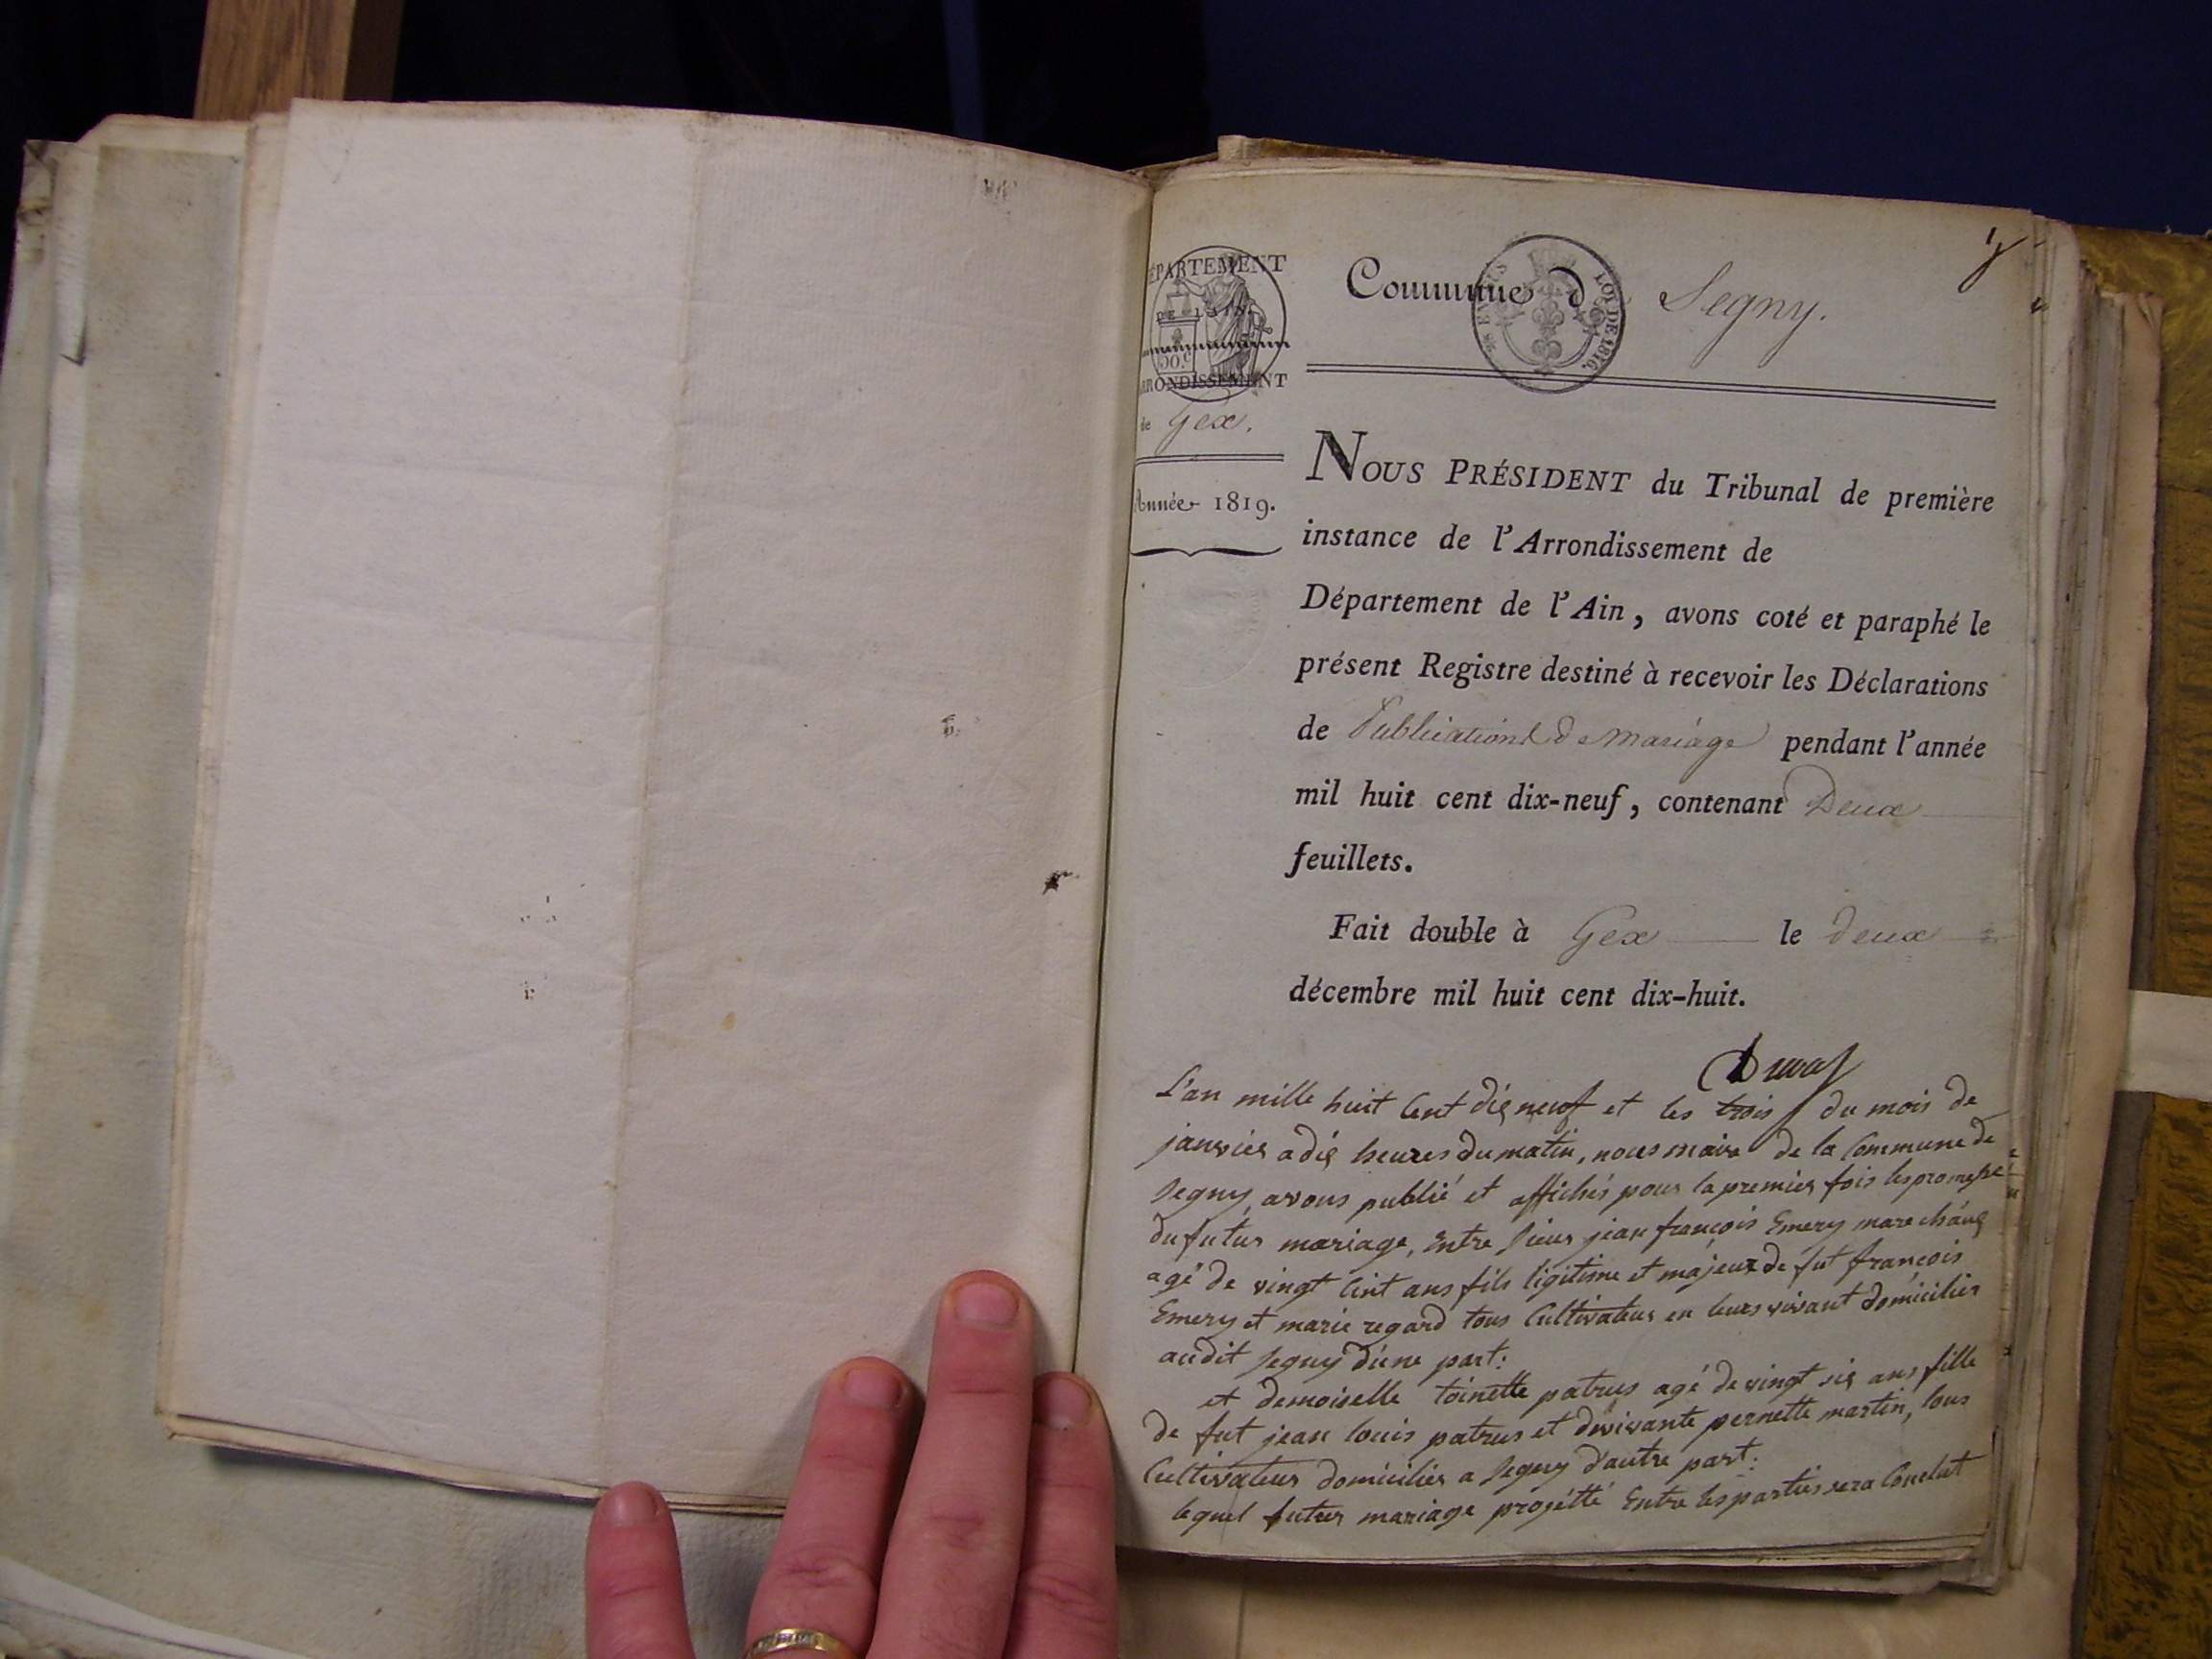 DÉPARTEMENT
DE L'AIN.
50.c
ARRONDISSEMENT
de Gex.
Année 1819.
Commune d Segny.
LOI DE 1816.
NOUS PRÉSIDENT du Tribunal de première
instance de l'Arrondissement de
Département de l'Ain, avons coté et paraphé le
présent Registre destiné à recevoir les Déclarations
de Publications de mariage pendant l'année
mil huit cent dix-neuf, contenant Deux
feuillets.
Fait double à Gex le deux
décembre mil huit cent dix-huit.
L'an mille huit Cent dix neuf et les trois du mois de
janvier a dix heures du matin, nous maire de la Commune de
Segny, avons publié et affichés pour la premier fois les promesse
du futur mariage, Entre sieur jean françois Emery marechang
agé de vingt Cint ans fils ligitime et majeur de fut françois
Emery et marie regard tous Cultivateur en leurs vivant domicilier
audit Segny d'une part:
et demoiselle toinette patrus agé de vingt six ans fille
de fut jean louis patrus et divivante pernette martin, tous
Cultivateur domicilier a Segny d'autre part:
lequel futur mariage progétté Entre les parties sera Conclut